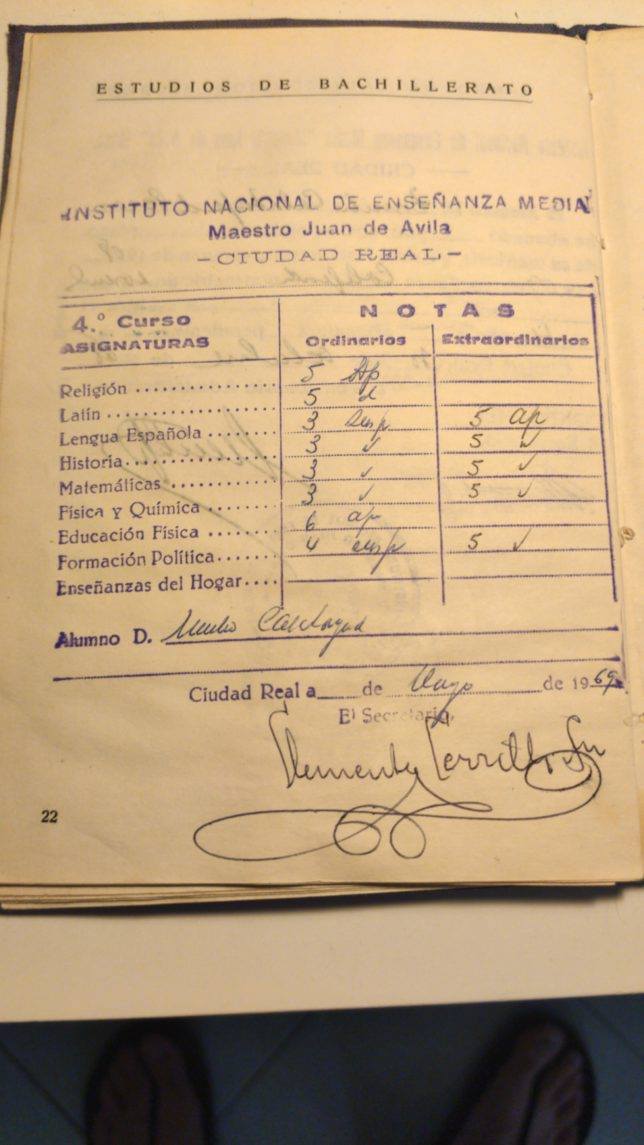 ESTUDIOS DE BACHILLERATO
INSTITUTO NACIONAL DE ENSEÑANZA MEDIA
Maestro Juan de Avila
—CIUDAD REAL—
4.º Curso
ASIGNATURAS
NOTAS
Ordinarios Extraordinarios
Religión 5 Ap
Latín 5
Lengua Española 3 susp 5 ap
Historia 3 ✓ 5 ✓
Matemáticas 3 ✓ 5 ✓
Física y Química 3 ✓ 5 ✓
Educación Física 6 ap
Formación Política 4 susp 5 ✓
Enseñanzas del Hogar
Alumno D.
Ciudad Real a de Mayo de 1969
El Secretario,
22